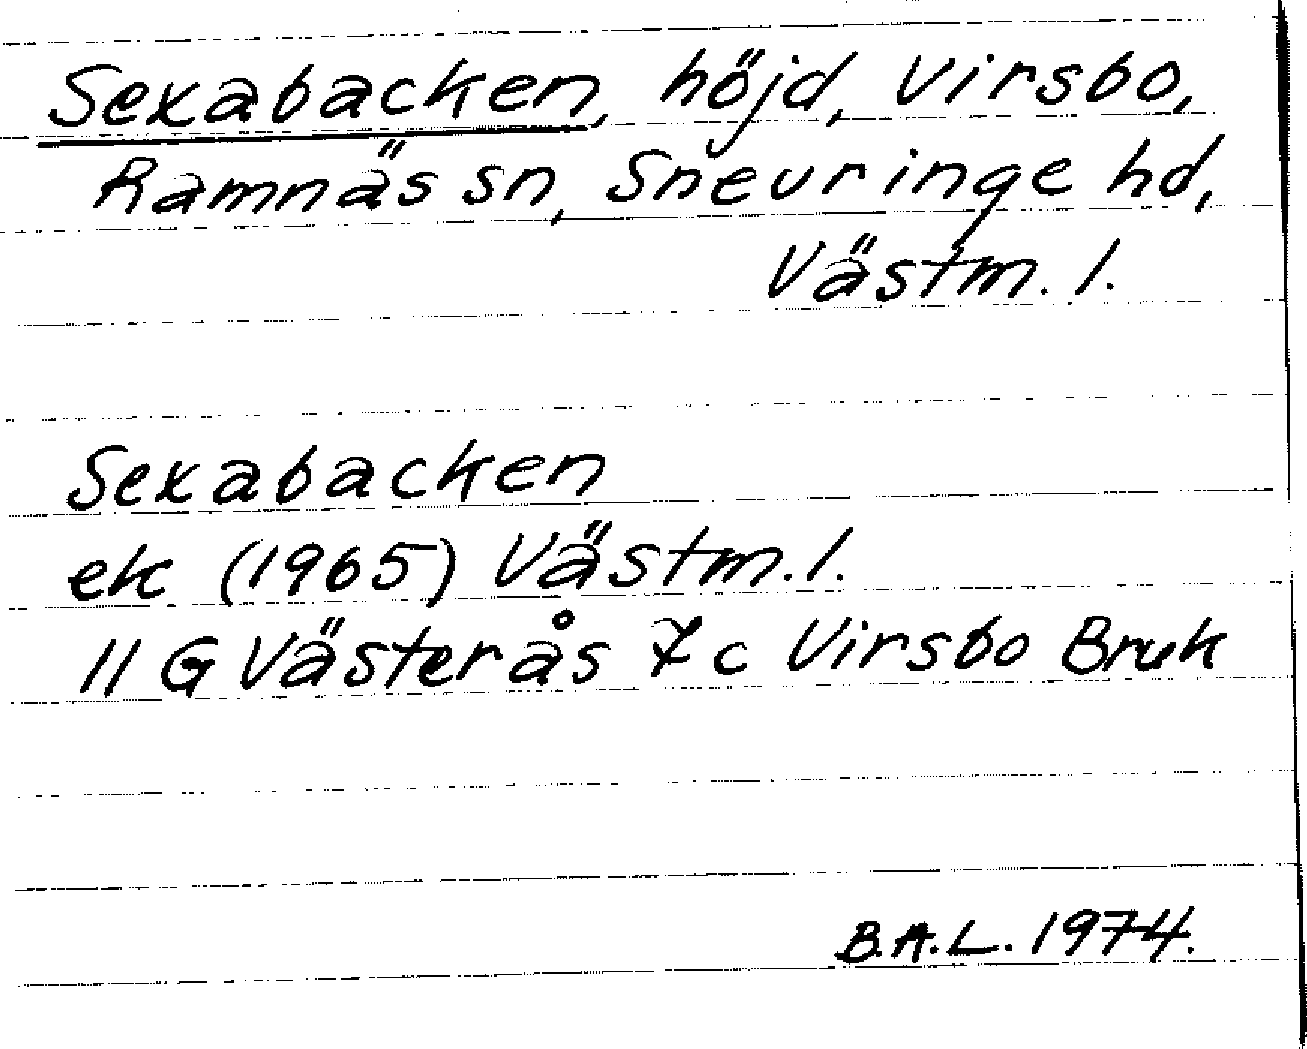 Sexabacken, höjd, Virsbo,
Ramnäs sn, Snevringe hd,
Västm. l.
Sexabacken
ek (1965) Västm. l.
11 G Västerås 7c Virsbo Bruk
B.A.L. 1974.